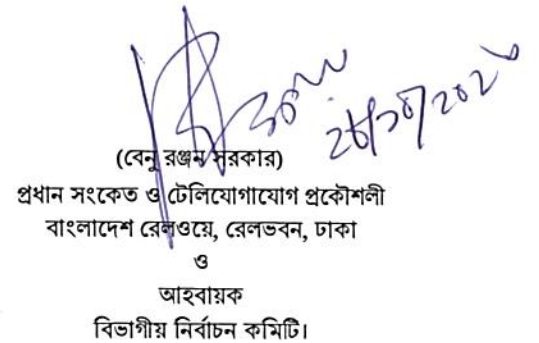 (বেনু রঞ্জন সরকার)
প্রধান সংকেত ও টেলিযোগাযোগ প্রকৌশলী
বাংলাদেশ রেলওয়ে, রেলভবন, ঢাকা
ও
আহবায়ক
বিভাগীয় নির্বাচন কমিটি।